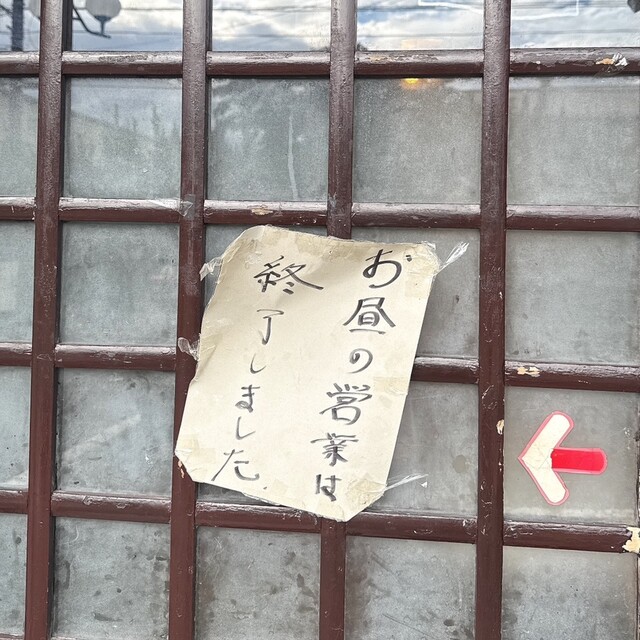 お昼の営業は
終了しました